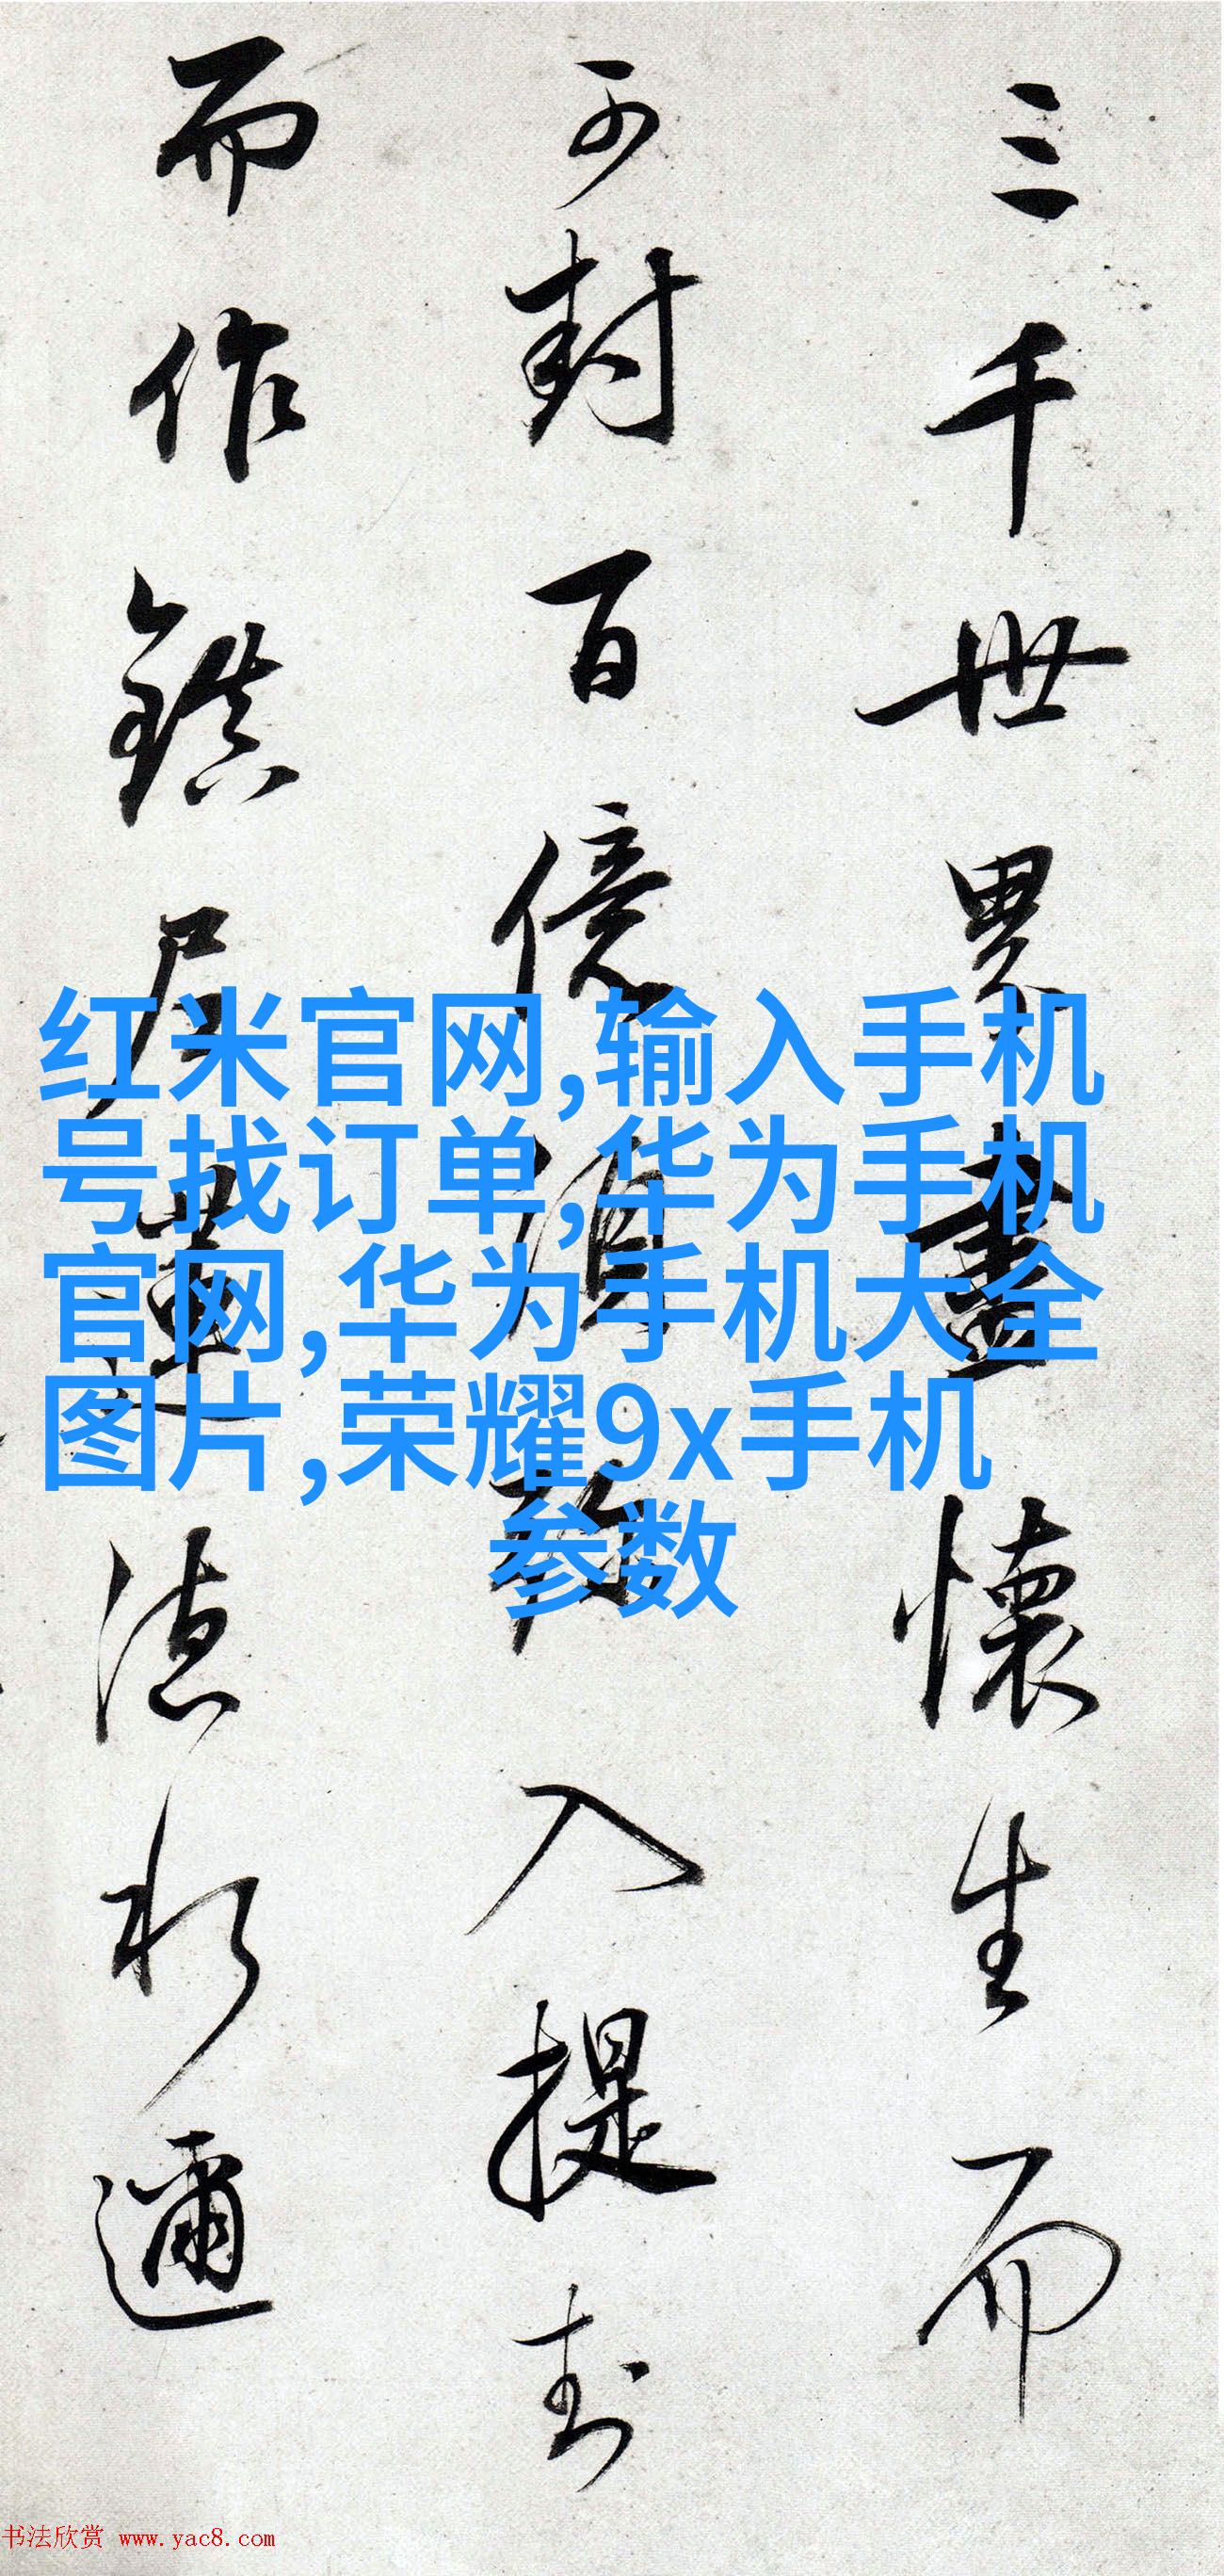 三千世界盡懷生而
可封百億須弥入提封
而作鎮居蓮
法於邇
红米官网,输入手机
号找订单,华为手机
官网,华为手机大全
图片,荣耀9x手机
参数
书法欣赏 www.yac8.com